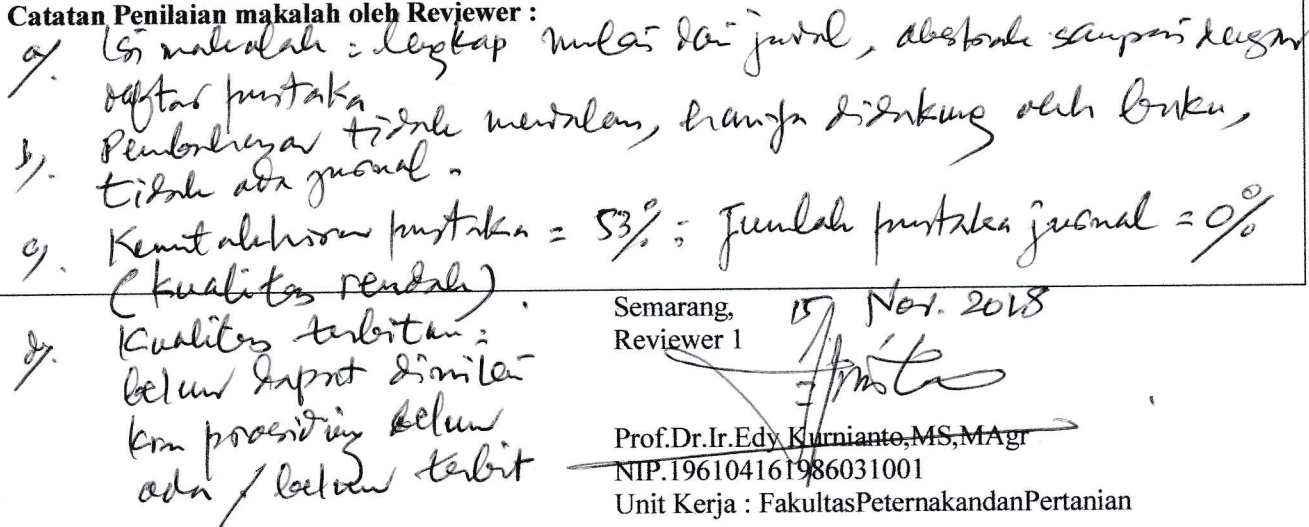 Catatan Penilaian makalah oleh Reviewer :
a/. Isi makalah : lengkap mulai dari judul, abstrak sampai dengan
daftar pustaka
b/. Pembahasan tidak mendalam, hanya didukung oleh buku,
tidak ada jurnal.
c/. Kemutakhiran pustaka = 53% ; Jumlah pustaka jurnal = 0%
(kualitas rendah).
d/. Kualitas terbitan :
belum dapat dinilai
krn prosiding belum
ada / belum terbit
Semarang, 15/ Nov. 2018
Reviewer 1
Prof.Dr.Ir.Edy Kurnianto,MS,MAgr
NIP.196104161986031001
Unit Kerja : FakultasPeternakandanPertanian